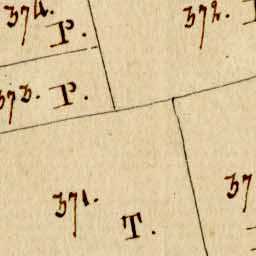 374.
P.
372.
373. P.
371.
T.
37